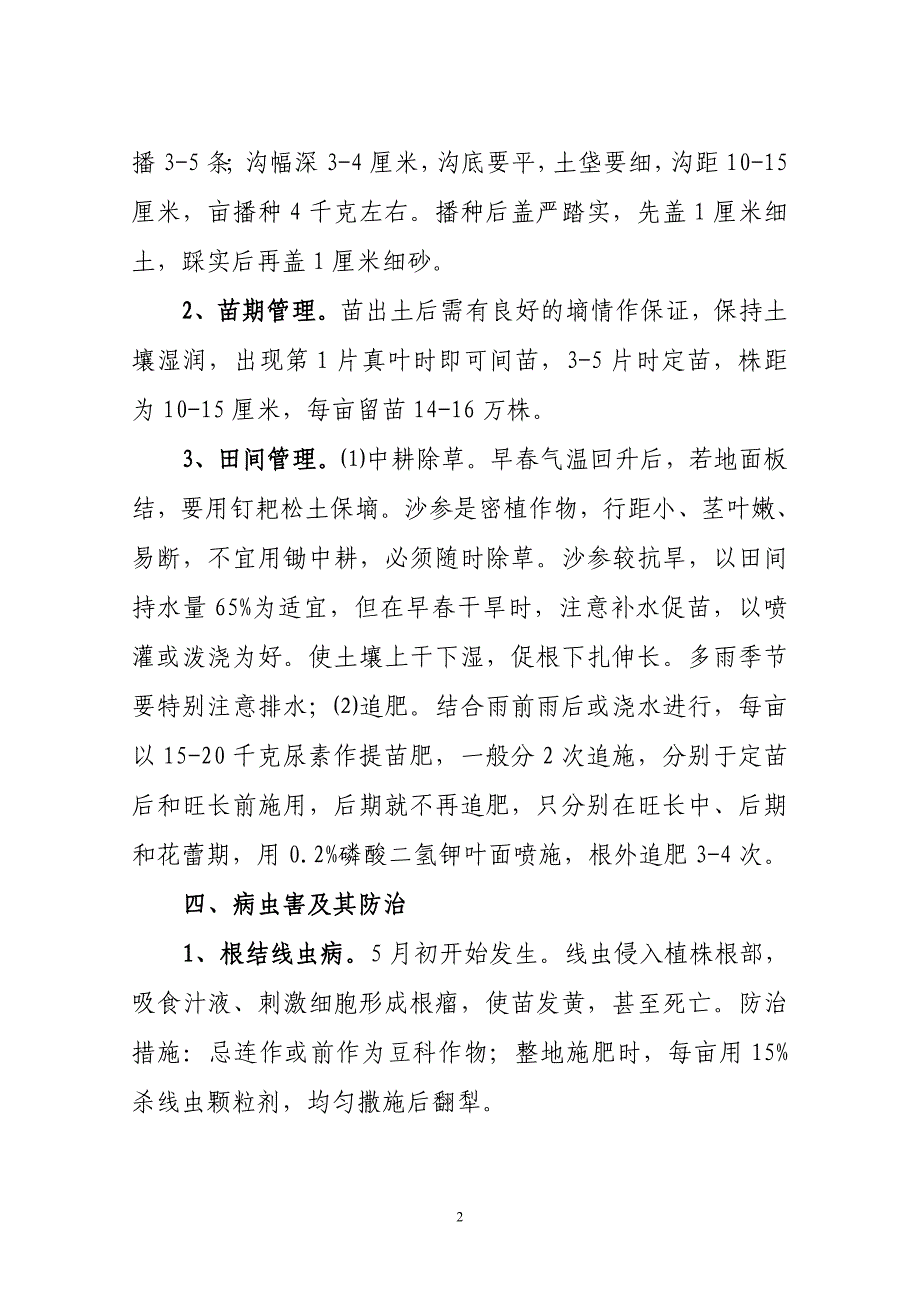 播3-5条；沟幅深3-4厘米，沟底要平，土垡要细，沟距10-15
厘米，亩播种4千克左右。播种后盖严踏实，先盖1厘米细
土，踩实后再盖1厘米细砂。
2、苗期管理。苗出土后需有良好的墒情作保证，保持土
壤湿润，出现第1片真叶时即可间苗，3-5片时定苗，株距
为10-15厘米，每亩留苗14-16万株。
3、田间管理。⑴中耕除草。早春气温回升后，若地面板
结，要用钉耙松土保墒。沙参是密植作物，行距小、茎叶嫩、
易断，不宜用锄中耕，必须随时除草。沙参较抗旱，以田间
持水量65%为适宜，但在早春干旱时，注意补水促苗，以喷
灌或泼浇为好。使土壤上干下湿，促根下扎伸长。多雨季节
要特别注意排水；⑵追肥。结合雨前雨后或浇水进行，每亩
以15-20千克尿素作提苗肥，一般分2次追施，分别于定苗
后和旺长前施用，后期就不再追肥，只分别在旺长中、后期
和花蕾期，用0.2%磷酸二氢钾叶面喷施，根外追肥3-4次。
四、病虫害及其防治
1、根结线虫病。5月初开始发生。线虫侵入植株根部，
吸食汁液、刺激细胞形成根瘤，使苗发黄，甚至死亡。防治
措施：忌连作或前作为豆科作物；整地施肥时，每亩用15%
杀线虫颗粒剂，均匀撒施后翻犁。
2